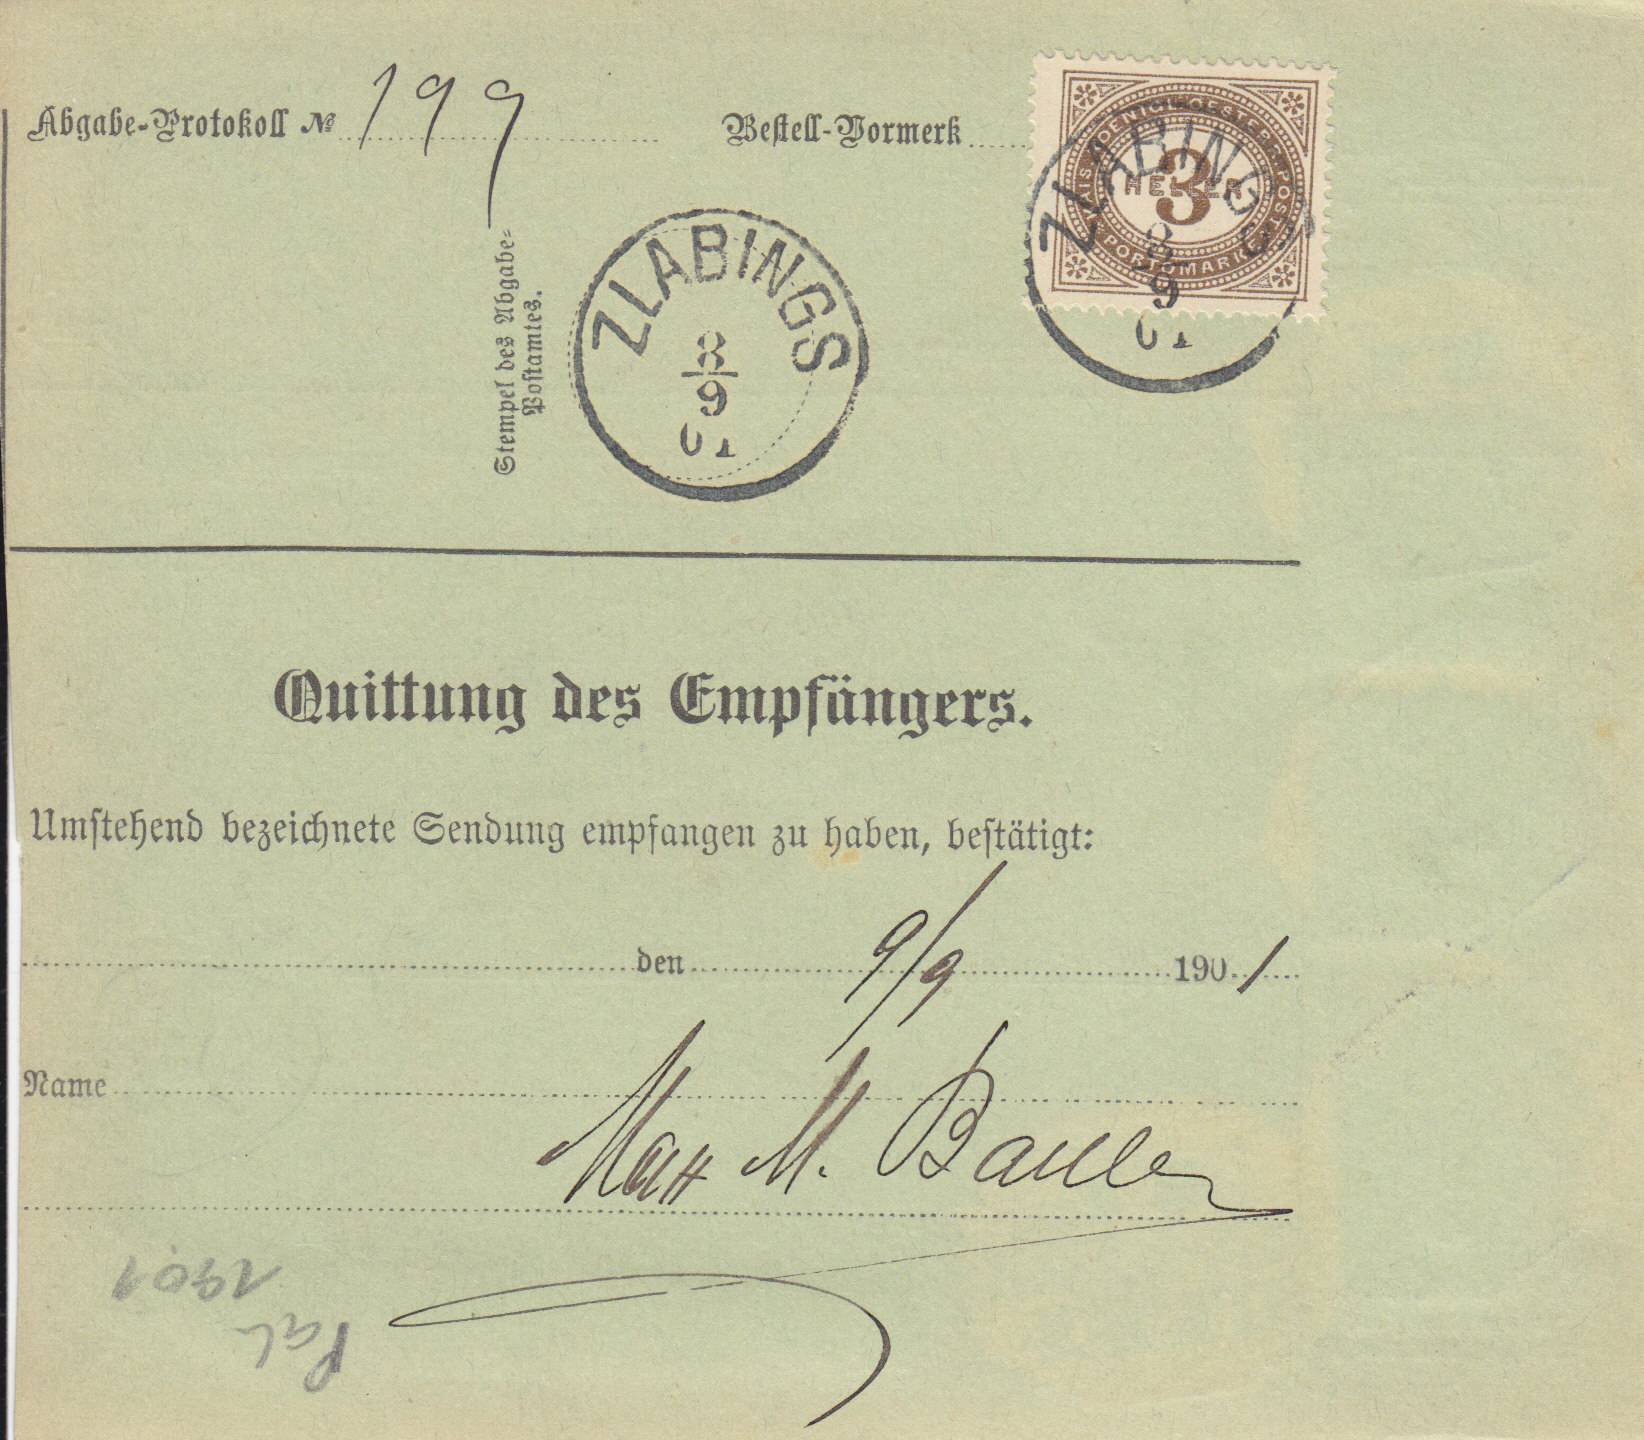 Abgabe-Protokoll № 199
Bestell-Vormerk
KAIS. KOENIGL. OESTERR. POST
3
HELLER
PORTOMARKE
ZLABINGS
8
9
01
Stempel des Abgabe-
Postamtes.
ZLABINGS
8
9
01
Quittung des Empfängers.
Umstehend bezeichnete Sendung empfangen zu haben, bestätigt:
den 9/9 1901
Name
Max M. Bauer
1901